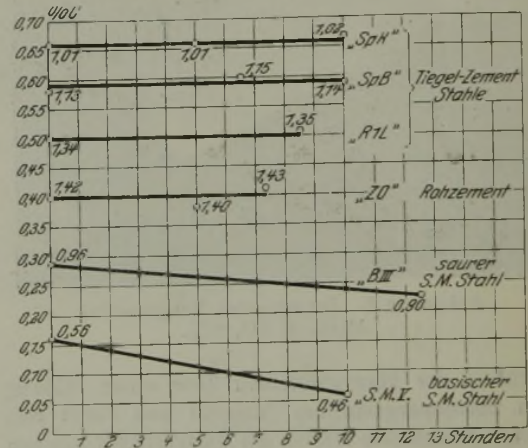 0,70
0,65
0,60
0,55
0,50
0,45
0,40
0,35
0,30
0,25
0,20
0,15
0,10
0,05
0
1,01 1,01 1,02 „SpH"
1,13 1,15 1,14 „SpB" Tiegel-Zement
Stahle
1,34 1,35 „R1L"
1,42 1,40 1,43 „Z0" Rohzement
0,96 0,90 „B.III" saurer
S.M. Stahl
0,56 0,46 „S.M.V. basischer
S.M. Stahl
1 2 3 4 5 6 7 8 9 10 11 12 13 Stunden